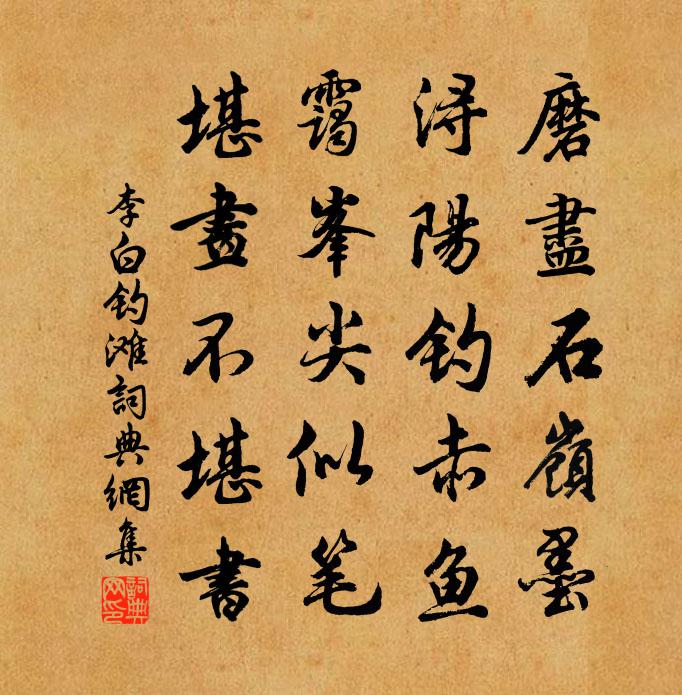 磨盡石嶺墨
潯陽钓赤鱼
靄峯尖似笔
堪畫不堪書
李白钓滩詞典網集
詞典網印